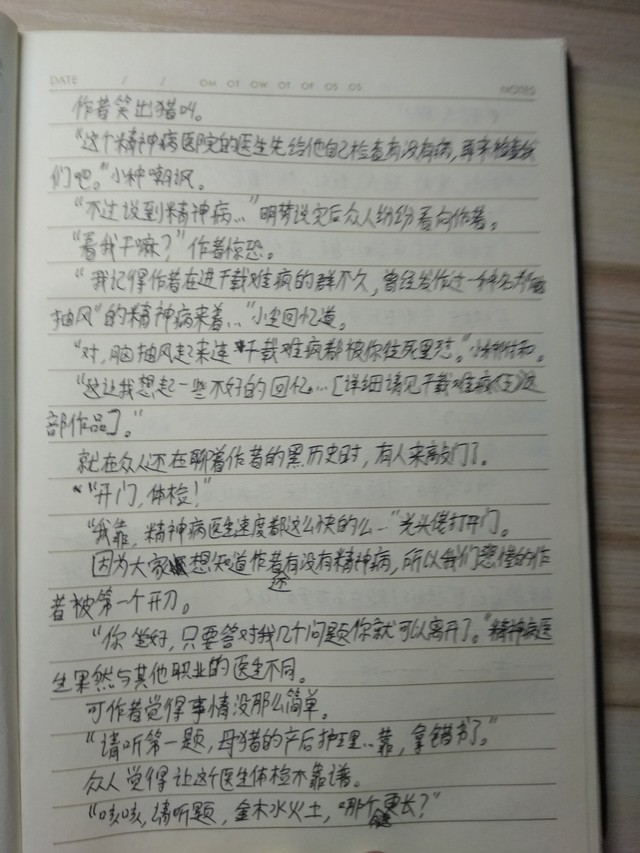 DATE / / OM OT OW OT OF OS OS NOTES
作者笑出猪叫。
“这个精神病医院的医生先给他自己检查有没有病，再来检查我
们吧。”小种嘲讽。
“不过说到精神病…”明梦说完后众人纷纷看向作者。
“看我干嘛？”作者惊恐。
“我记得作者在进千载难疯的群不久，曾经发作过一种名为“脑
抽风”的精神病来着…”小尘回忆道。
“对，脑抽风起来连千载难疯都被你往死里怼。”小种附和。
“这让我想起一些不好的回忆…［详细请见千载难疯
部作品］。”
就在众人还在聊着作者的黑历史时，有人来敲门了。
“开门，体检！”
“我靠，精神病医生速度都这么快的么…”光头佬打开门。
因为大家想知道作者有没有精神病，所以我们悲催的作
者被第一个开刀。
“你坐好，只要答对我几个问题你就可以离开了。”精神病医
生果然与其他职业的医生不同。
可作者觉得事情没那么简单。
“请听第一题，母猪的产后护理…靠，拿错书了。”
众人觉得让这个医生体检不靠谱。
“咳咳，请听题，金木水火土，哪个更长？”